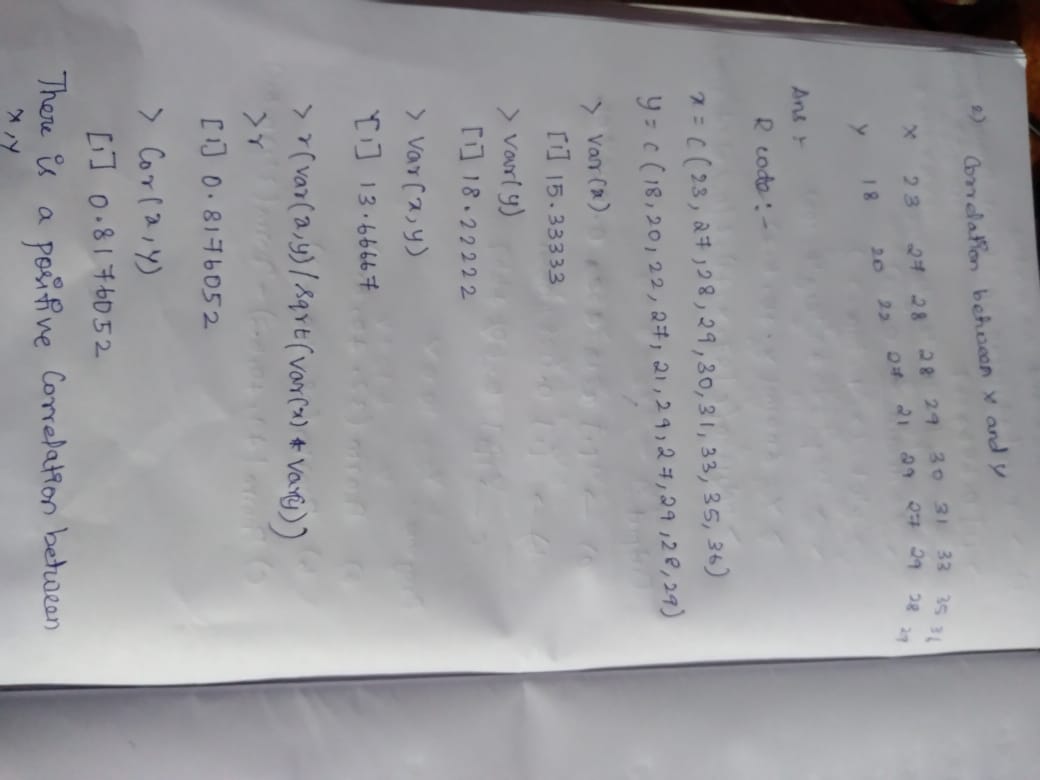 2) Correlation between x and y
x 23 27 28 28 29 30 31 33 35 36
y 18 20 22 27 21 29 27 29 28 29
Ans :-
R code :-
x = c (23, 27, 28, 29, 30, 31, 33, 35, 36)
y = c (18, 20, 22, 27, 21, 29, 27, 29, 28, 29)
> var(x)
[1] 15.33333
> var(y)
[1] 18.22222
> var(x,y)
[1] 13.66667
> r(var(x,y)/sqrt(var(x) * var(y))
> r
[1] 0.8176052
> Cor(x,y)
[1] 0.8176052
There is a positive Correlation between
x,y